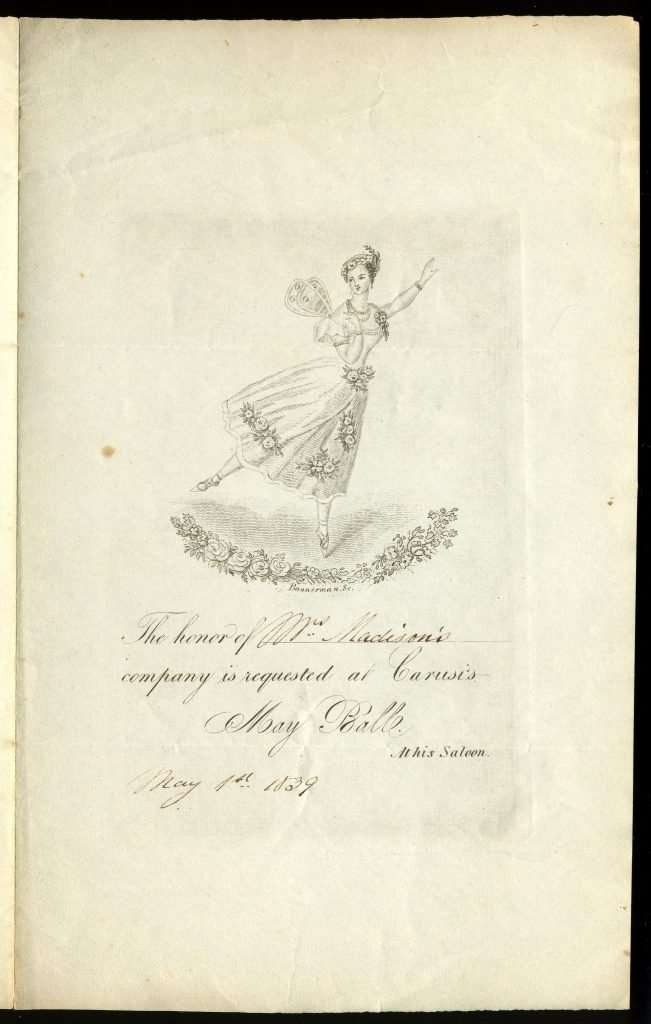 Bannerman. Sc.
The honor of Mrs. Madison's
company is requested at Carusi's
May Ball.
At his Saloon.
May 1st. 1839